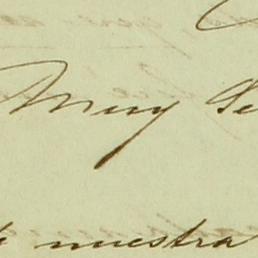 Muy Se
nuestra